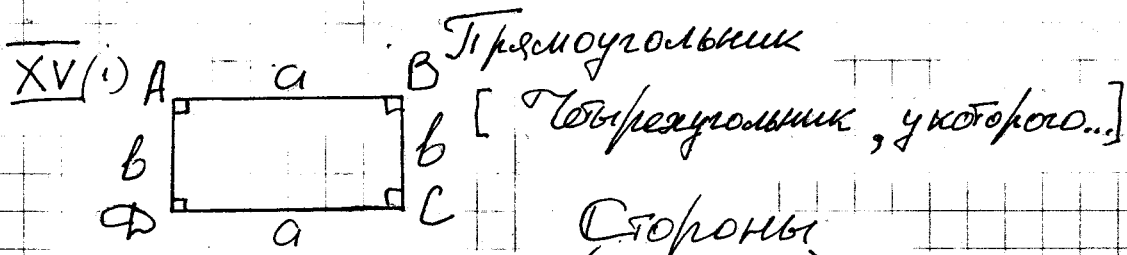 XV(i) A a B Прямоугольник
[ Четырехугольник, у которого...]
в в
D a C
Стороны